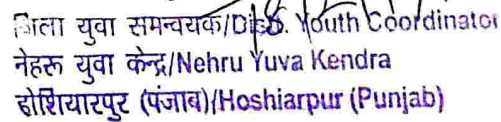 जिला युवा समन्वयक/Distt. Youth Coordinator
नेहरू युवा केन्द्र/Nehru Yuva Kendra
होशियारपुर (पंजाब)/Hoshiarpur (Punjab)